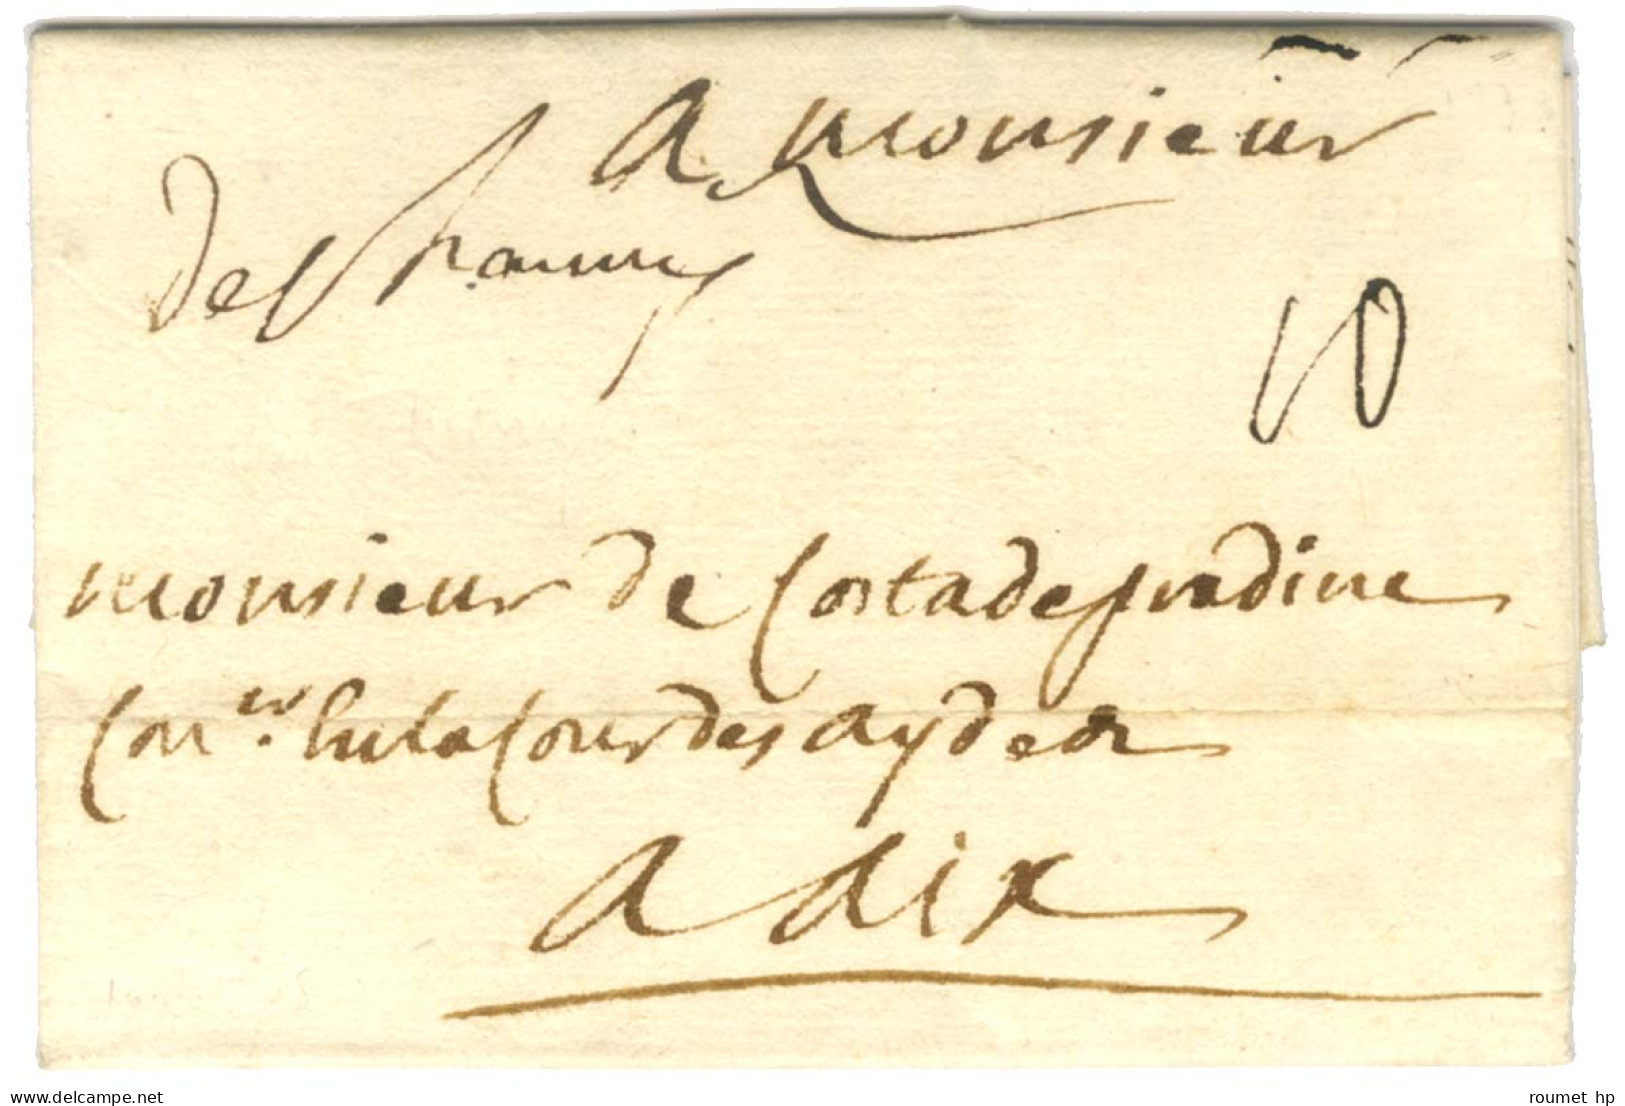 A monsieur
de St chaumes
10
monsieur de Cortadepradine
Con.er en la Cour des aydes
A Aix
delcampe.net
roumet hp